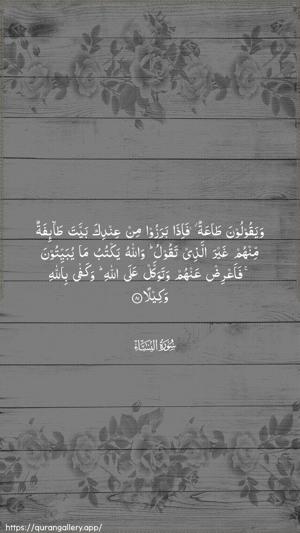 وَيَقُوْلُوْنَ طَاعَةٌ ۫ فَاِذَا بَرَزُوْا مِنْ عِنْدِكَ بَيَّتَ طَآئِفَةٌ
مِّنْهُمْ غَيْرَ الَّذِىْ تَقُوْلُ ؕ وَاللّٰهُ يَكْتُبُ مَا يُبَيِّتُوْنَ
ۚ فَاَعْرِضْ عَنْهُمْ وَتَوَكَّلْ عَلَى اللّٰهِ ؕ وَكَفٰى بِاللّٰهِ
وَكِيْلًا ۝٨١
سُورَةُ النِّسَاءِ
https://qurangallery.app/